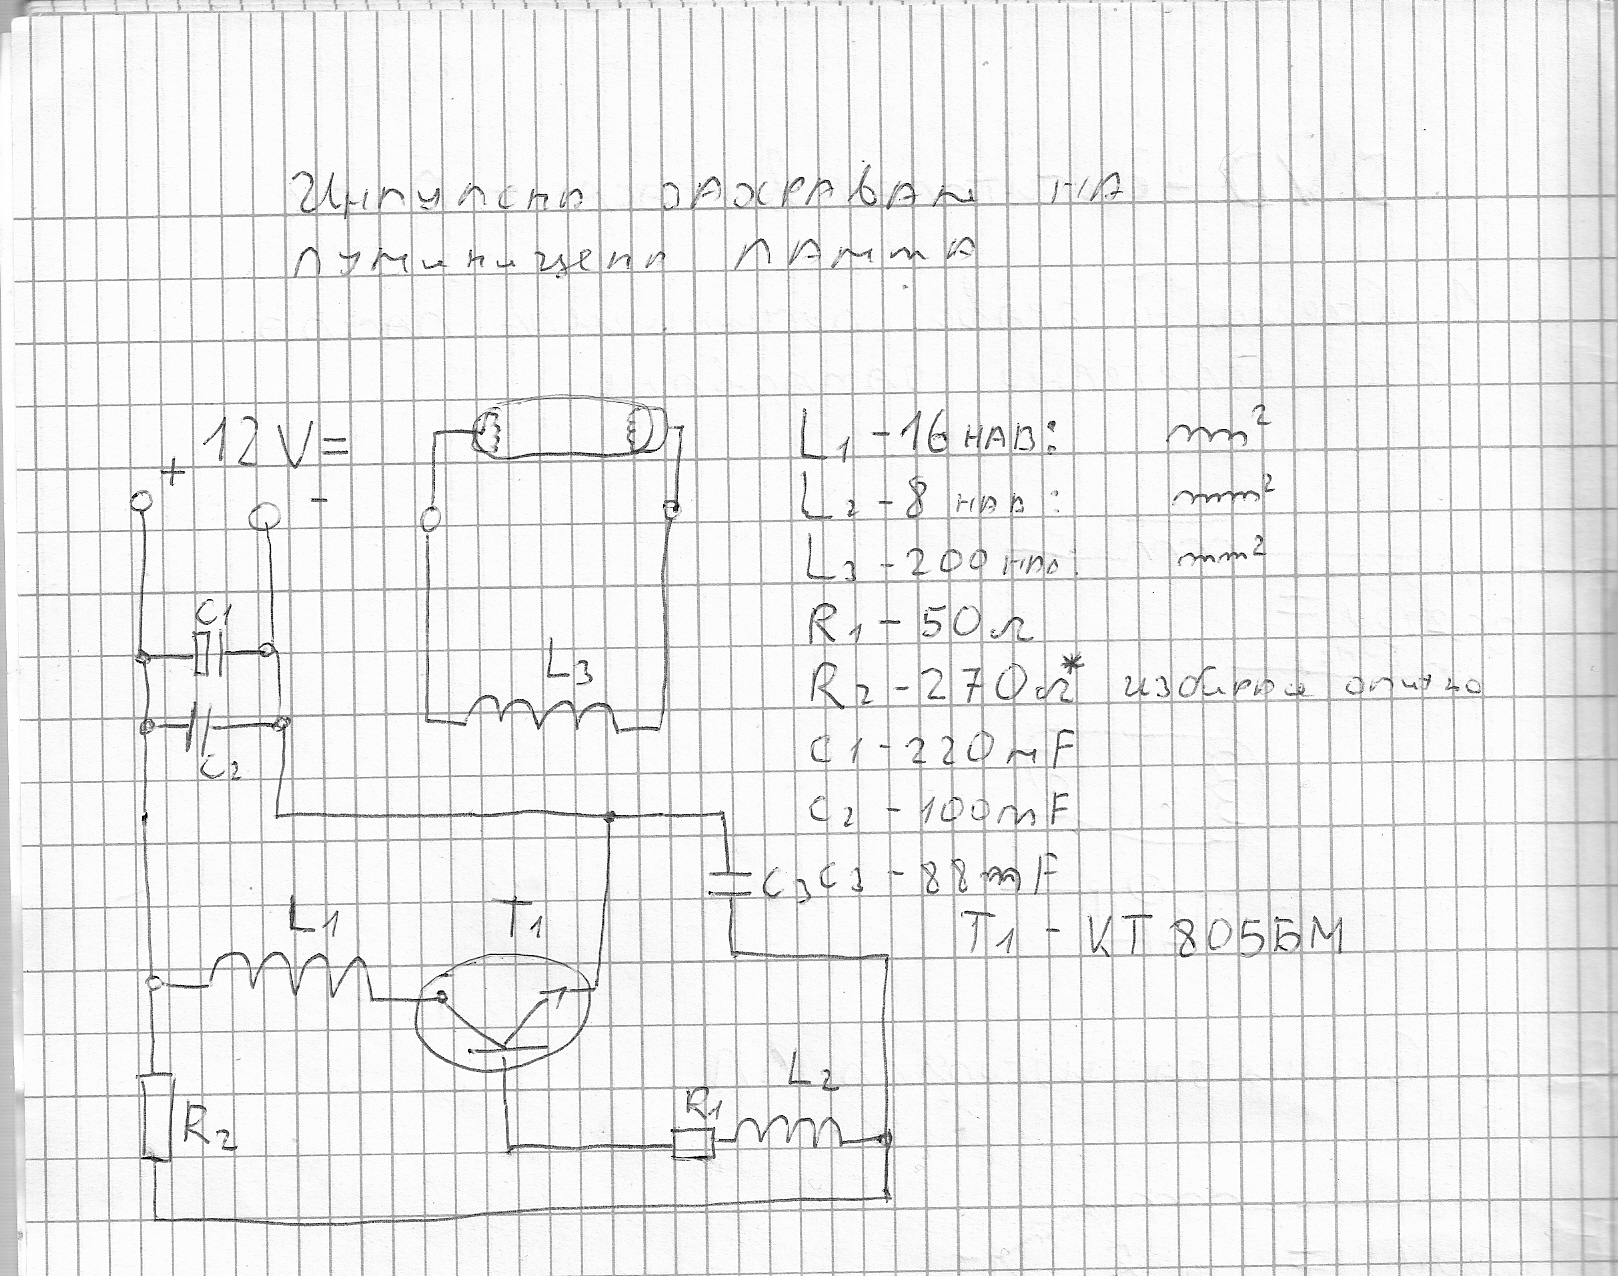 Импулсно захранване на
луминисцентна лампа
12V=
+
-
L1 - 16 нав: mm²
L2 - 8 нав: mm²
L3 - 200 нав: mm²
R1 - 50Ω
R2 - 270Ω* избира опитно
C1 - 220mF
C2 - 100mF
C3 C3 - 88mF
T1 - КТ805БМ
C1
C2
L3
L1
T1
R2
R1
L2